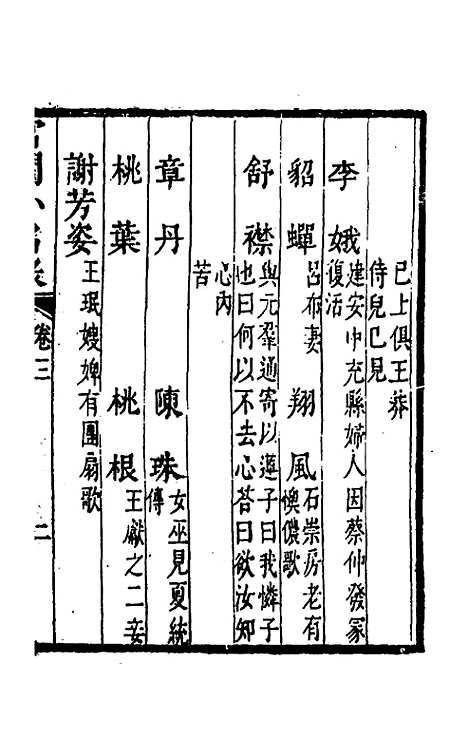 已上俱王莽
侍兒已見
李娥建安中充縣婦人因蔡仲發冢
復活
貂蟬呂布妻 翔風石崇房老有
懊儂歌
舒襟與元羣通寄以蓮子曰我憐子
也曰何以不去心答曰欲汝知
心內
苦
章丹 陳珠女巫見夏統
傳
桃葉 桃根王獻之二妾
謝芳姿王珉嫂婢有團扇歌
卷三 二